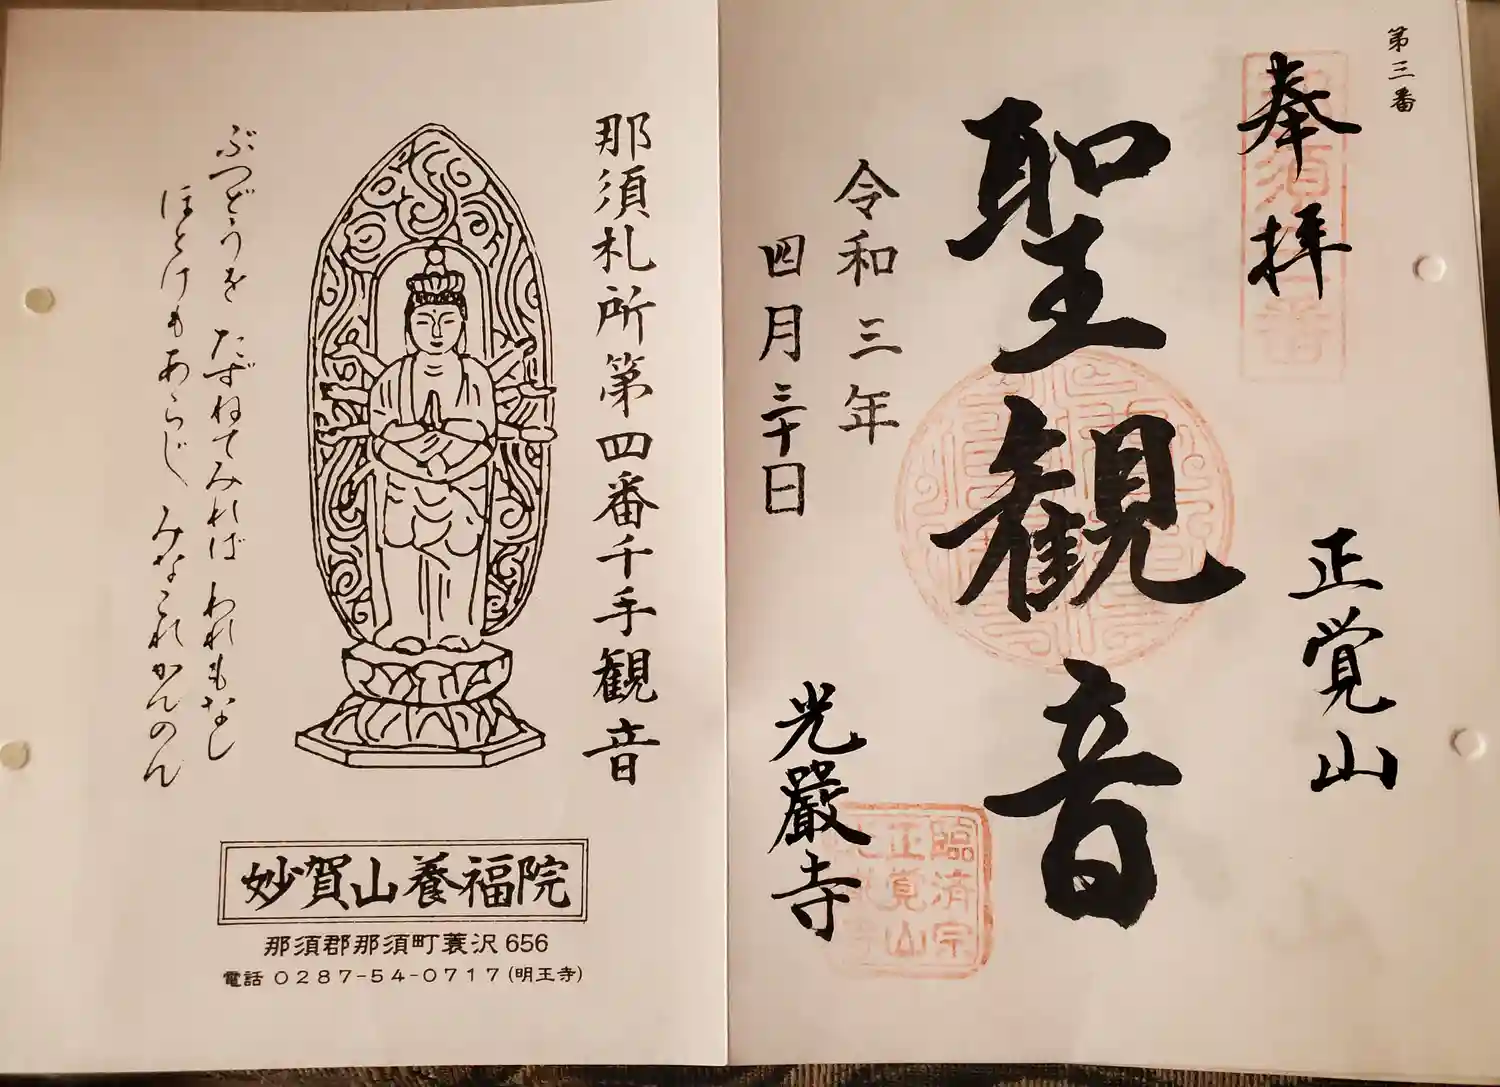 第三番
奉拝
正覚山
聖観音
令和三年
四月三十日
光嚴寺
臨済宗
正覚山
那須札所第四番千手観音
ぶつどうを たずねてみれば われもなし
ほとけもあらじ みなこれかんのん
妙賀山養福院
那須郡那須町蓑沢656
電話 0287-54-0717(明王寺)